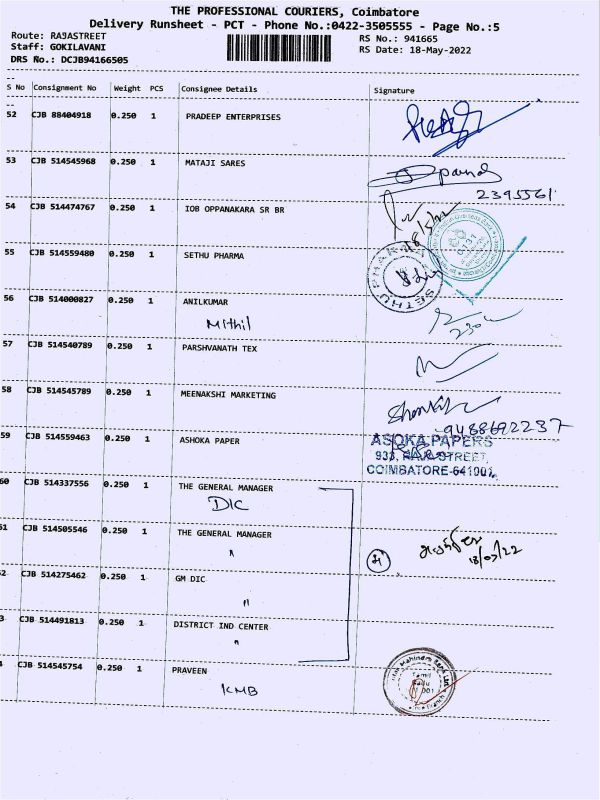 THE PROFESSIONAL COURIERS, Coimbatore
Delivery Runsheet - PCT - Phone No.:0422-3505555 - Page No.:5
Route: RAJASTREET
Staff: GOKILAVANI
DRS No.: DCJB94166505
RS No.: 941665
RS Date: 18-May-2022
S No Consignment No Weight PCS Consignee Details Signature
52 CJB 88404918 0.250 1 PRADEEP ENTERPRISES
53 CJB 514545968 0.250 1 MATAJI SARES
2395561
54 CJB 514474767 0.250 1 IOB OPPANAKARA SR BR
18/5/22
55 CJB 514559480 0.250 1 SETHU PHARMA
SETHU PHARMA
56 CJB 514000827 0.250 1 ANILKUMAR
Mithil
57 CJB 514540789 0.250 1 PARSHVANATH TEX
58 CJB 514545789 0.250 1 MEENAKSHI MARKETING
9488692237
59 CJB 514559463 0.250 1 ASHOKA PAPER
ASOKA PAPERS
933, RAJA STREET,
COIMBATORE-641001.
60 CJB 514337556 0.250 1 THE GENERAL MANAGER
DIC
51 CJB 514505546 0.250 1 THE GENERAL MANAGER
"
2 CJB 514275462 0.250 1 GM DIC
"
3 CJB 514491813 0.250 1 DISTRICT IND CENTER
"
4 CJB 514545754 0.250 1 PRAVEEN
KMB
Mahindra Bank Ltd
Tamil
Nadu
001
Branch